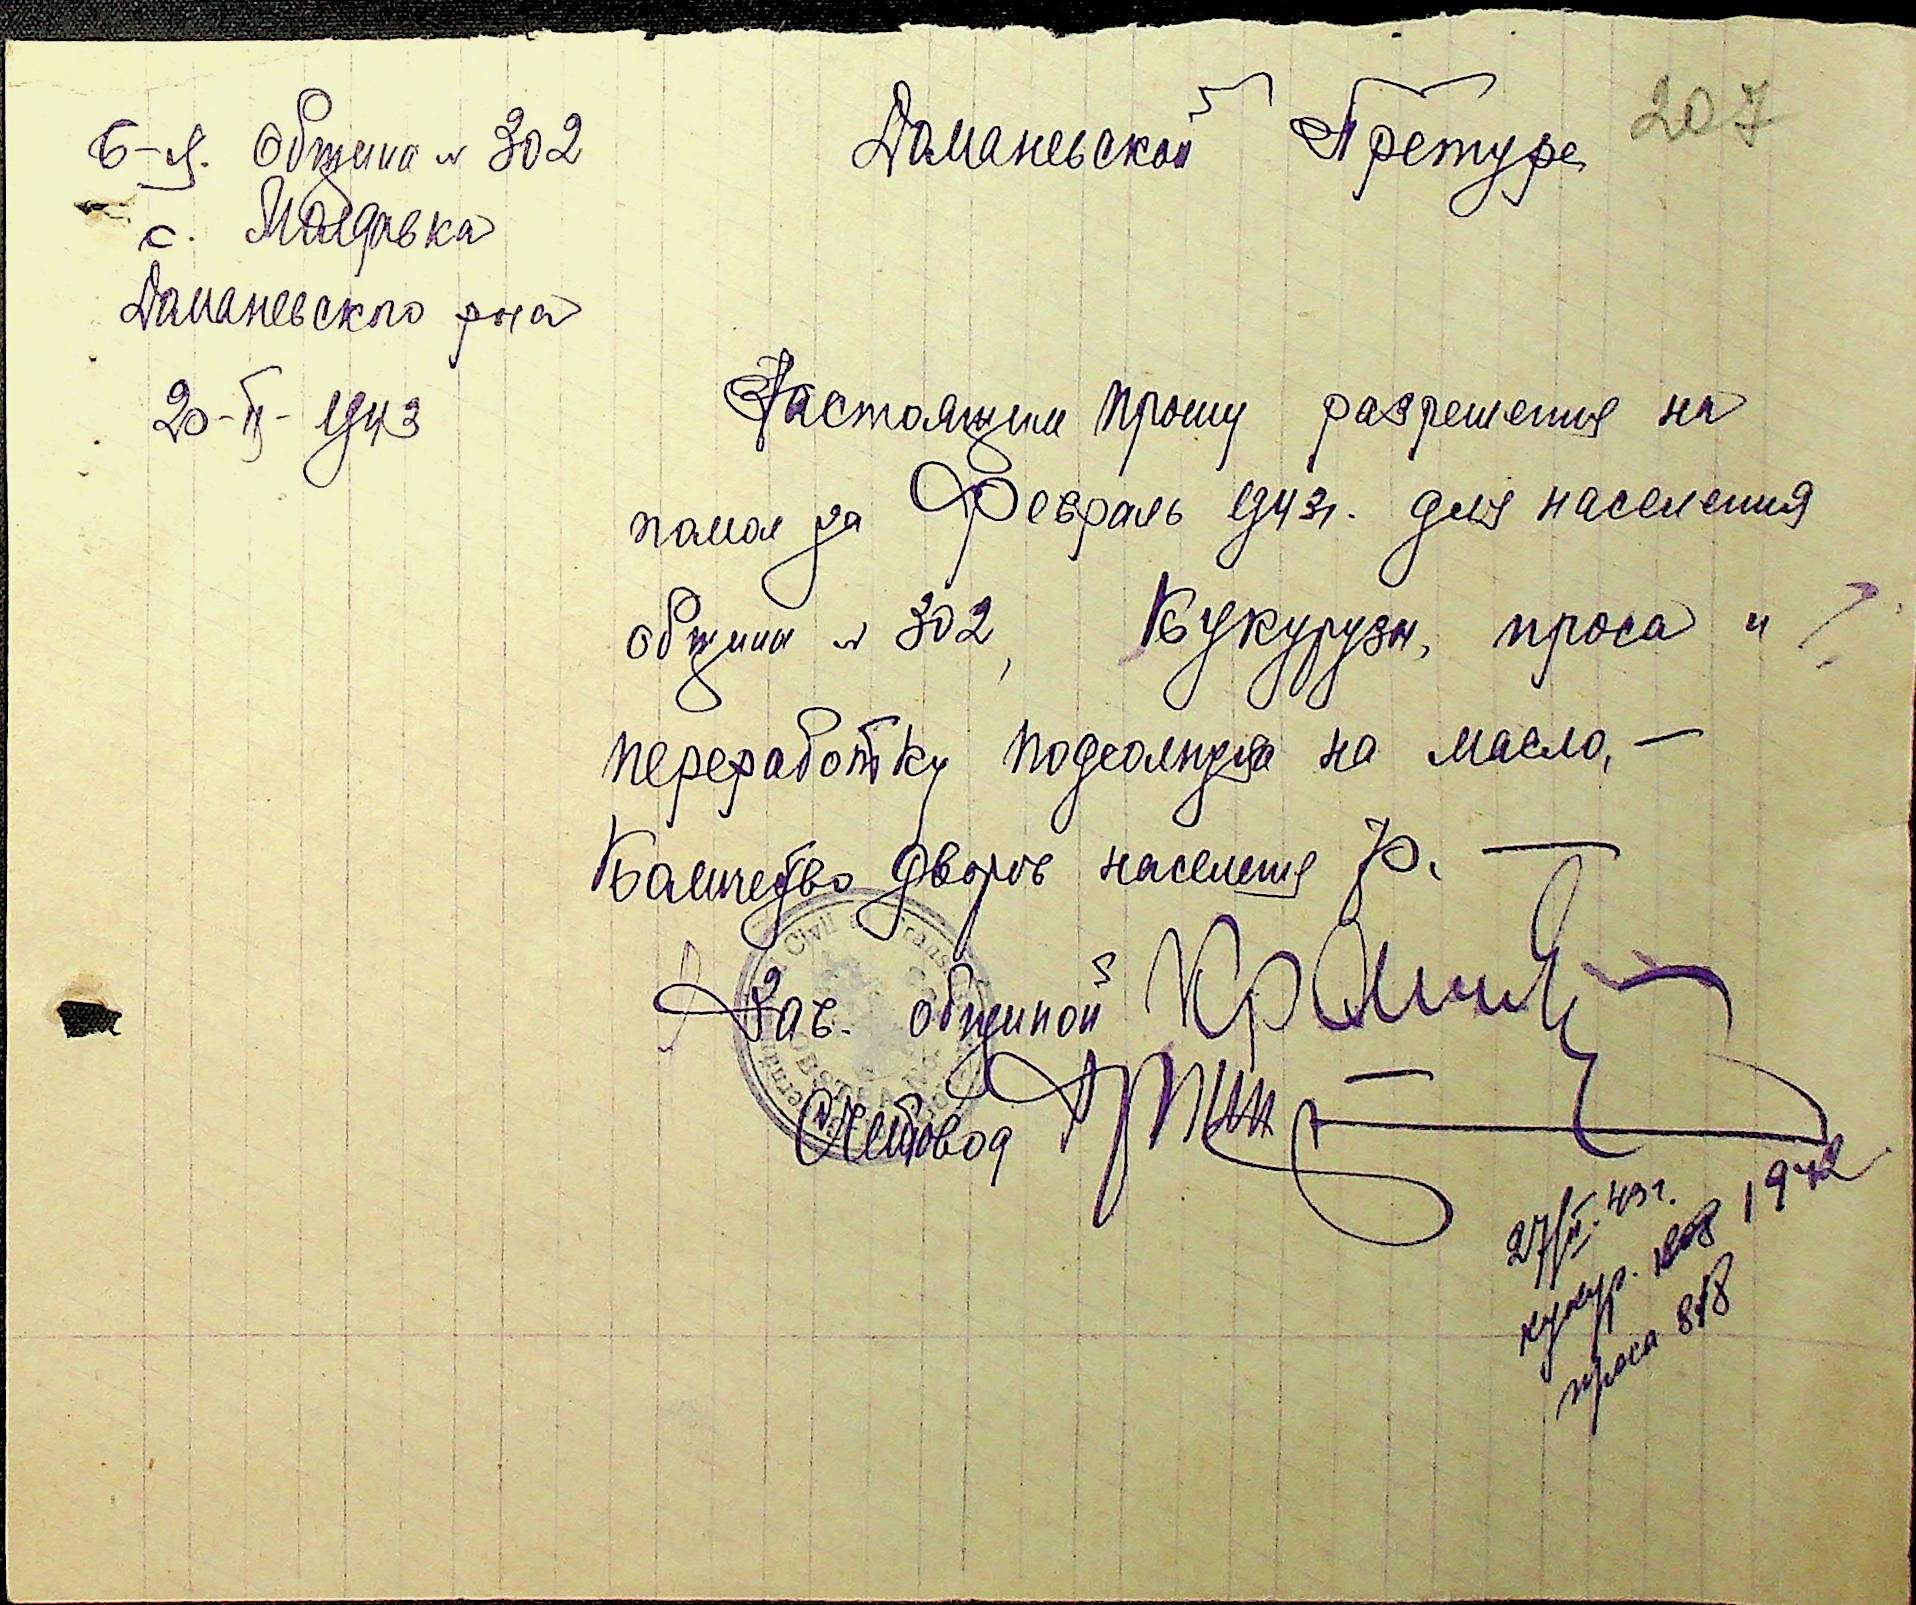 207
Доманевской Претуре
С-Х. Община № 302
с. Молдавка
Доманевского р-на
20-II-1943
Настоящим прошу разрешения на
помол за Февраль 1943 г. для населения
община № 302, Кукурузы, проса и
переработку подсолнуха на масло, —
Количество дворов населения 70. —
Зав. общиной
Счетовод
27/II. 43 г.
кукур. 1942
проса 818
Civil Trans